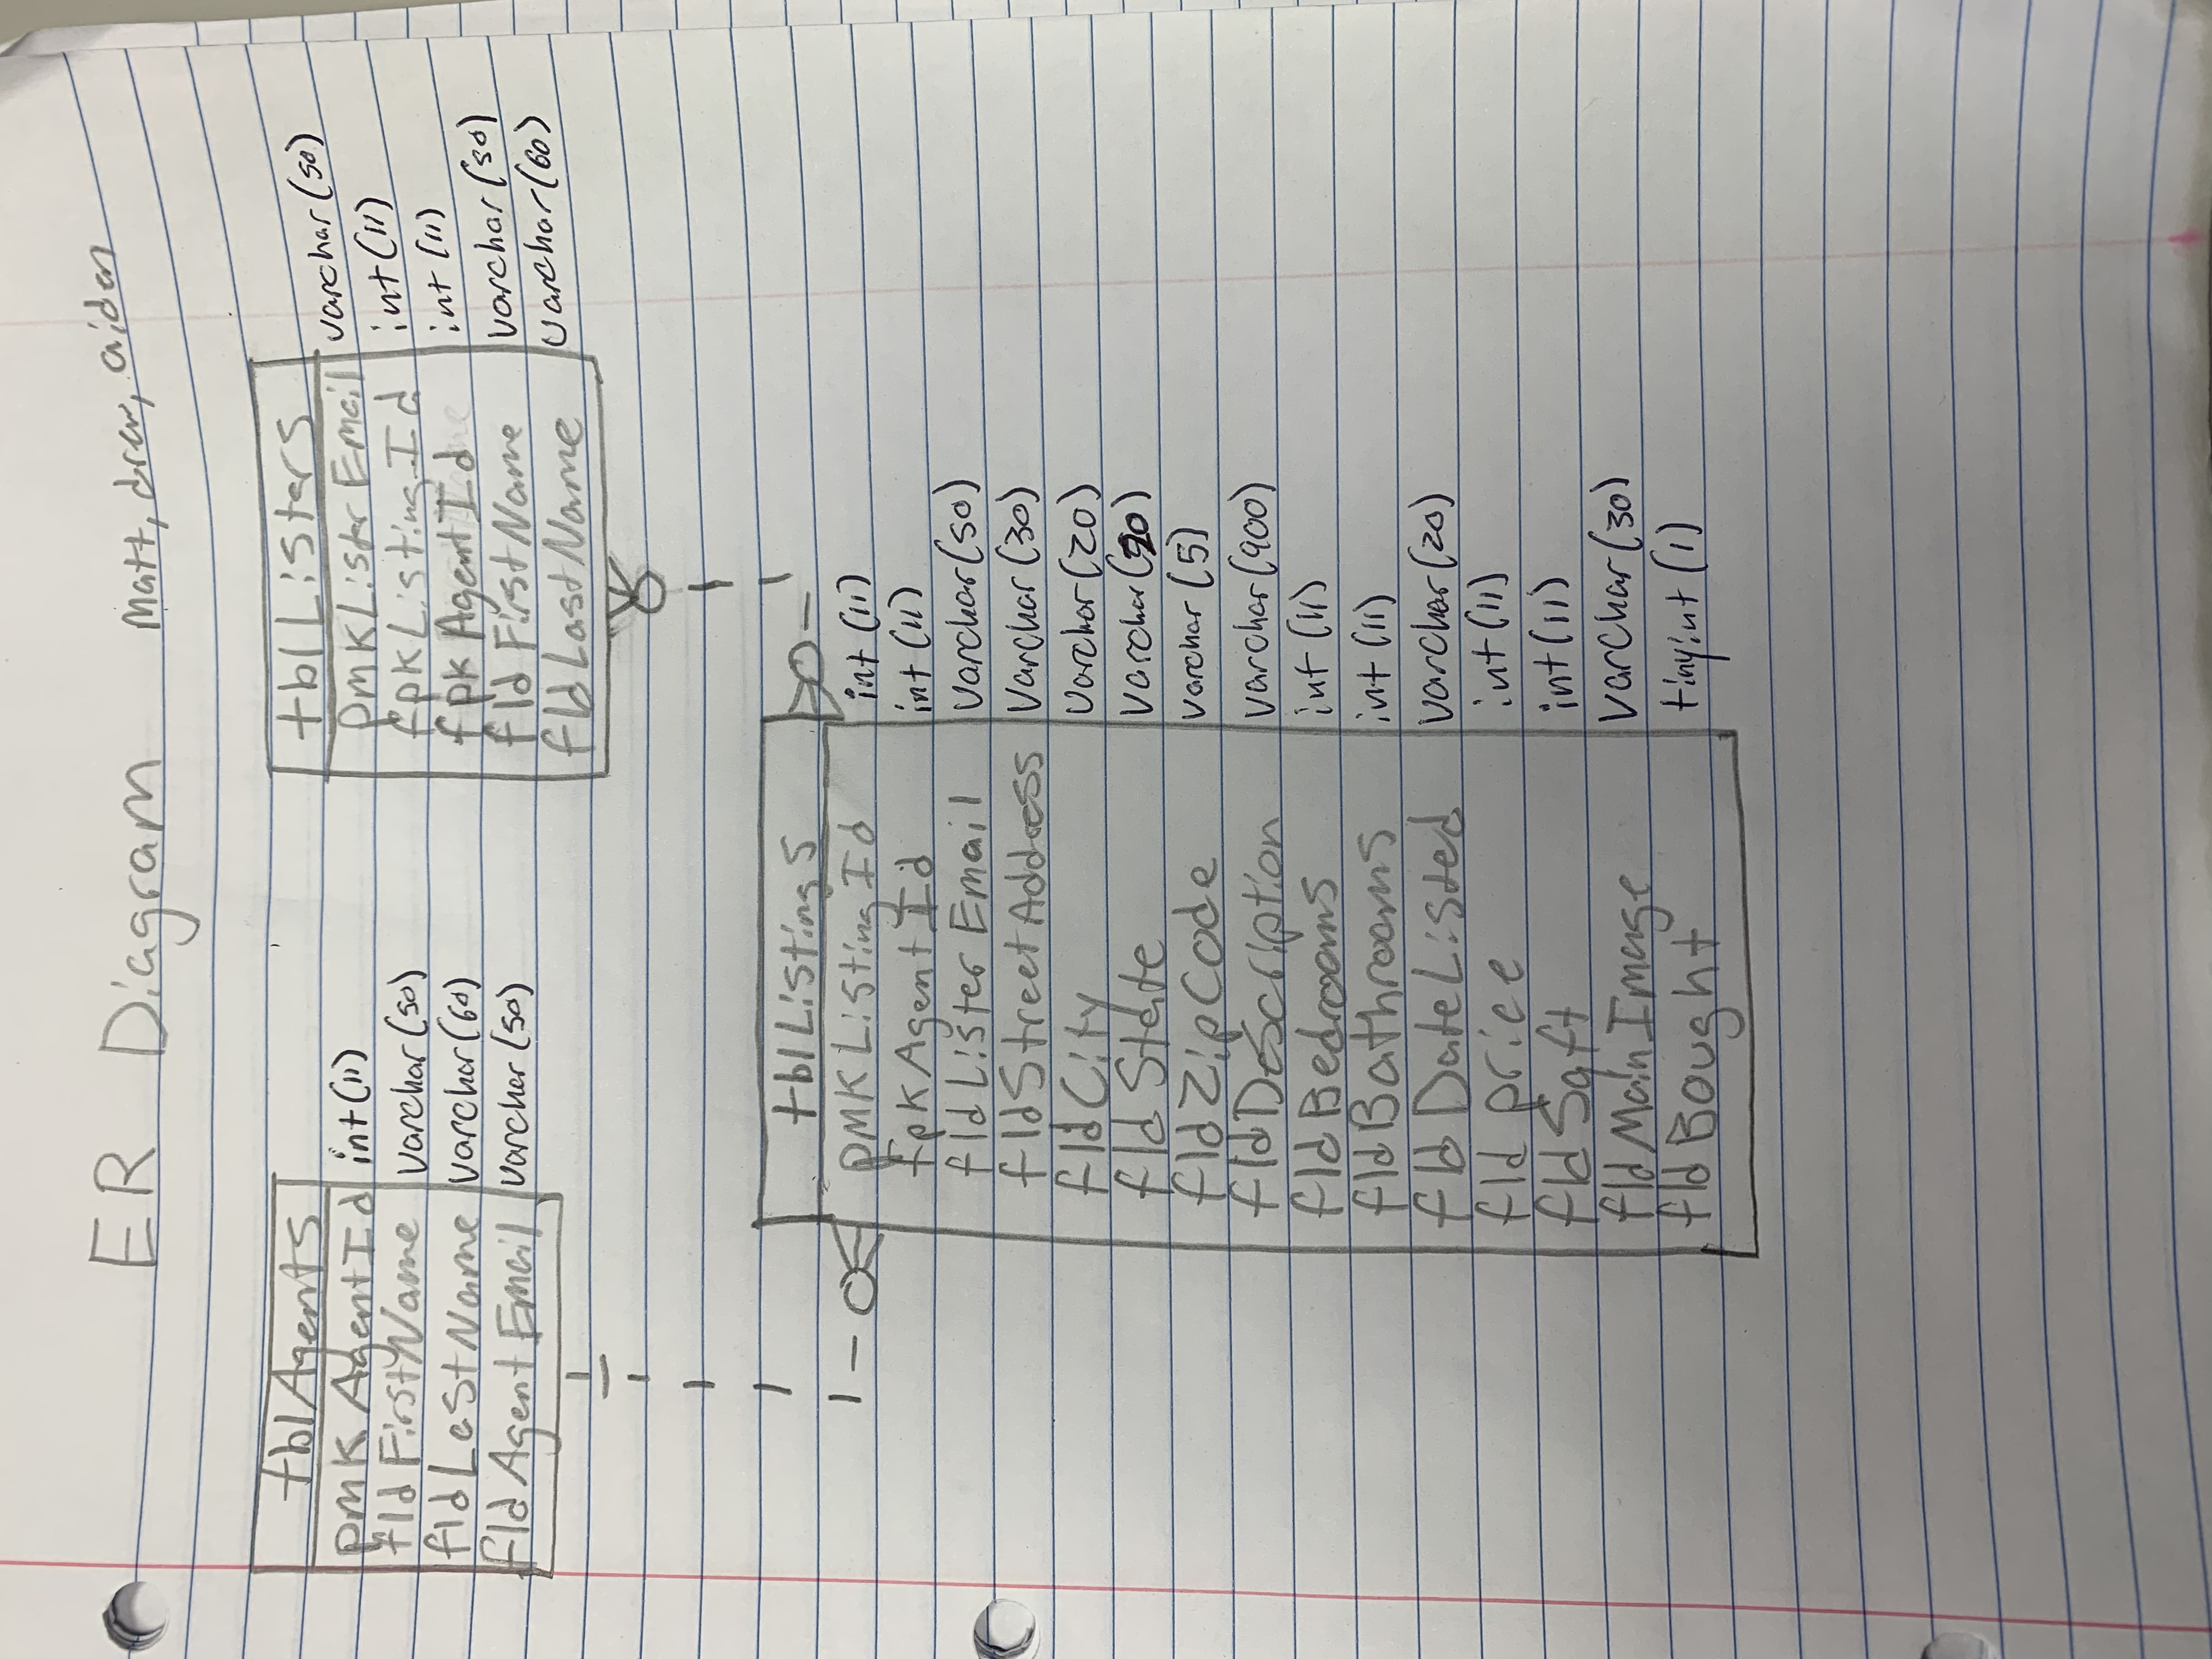 ER Diagram Matt, drew, aiden
tblAgents
pmkAgentId int(11)
fldFirstName varchar(50)
fldLastName varchar(60)
fldAgentEmail varchar(50)
tblListers
pmkListerEmail varchar(50)
fpkListingId int(11)
fpkAgentId int(11)
fldFirstName varchar(50)
fldLastName varchar(60)
tblListings
pmkListingId int(11)
fpkAgentId int(11)
fldListerEmail varchar(50)
fldStreetAddress varchar(30)
fldCity varchar(20)
fldState varchar(20)
fldZipCode varchar(5)
fldDescription varchar(900)
fldBedrooms int(11)
fldBathrooms int(11)
fldDateListed varchar(20)
fldprice int(11)
fldSqft int(11)
fldMainImage varchar(30)
fldBought tinyint(1)